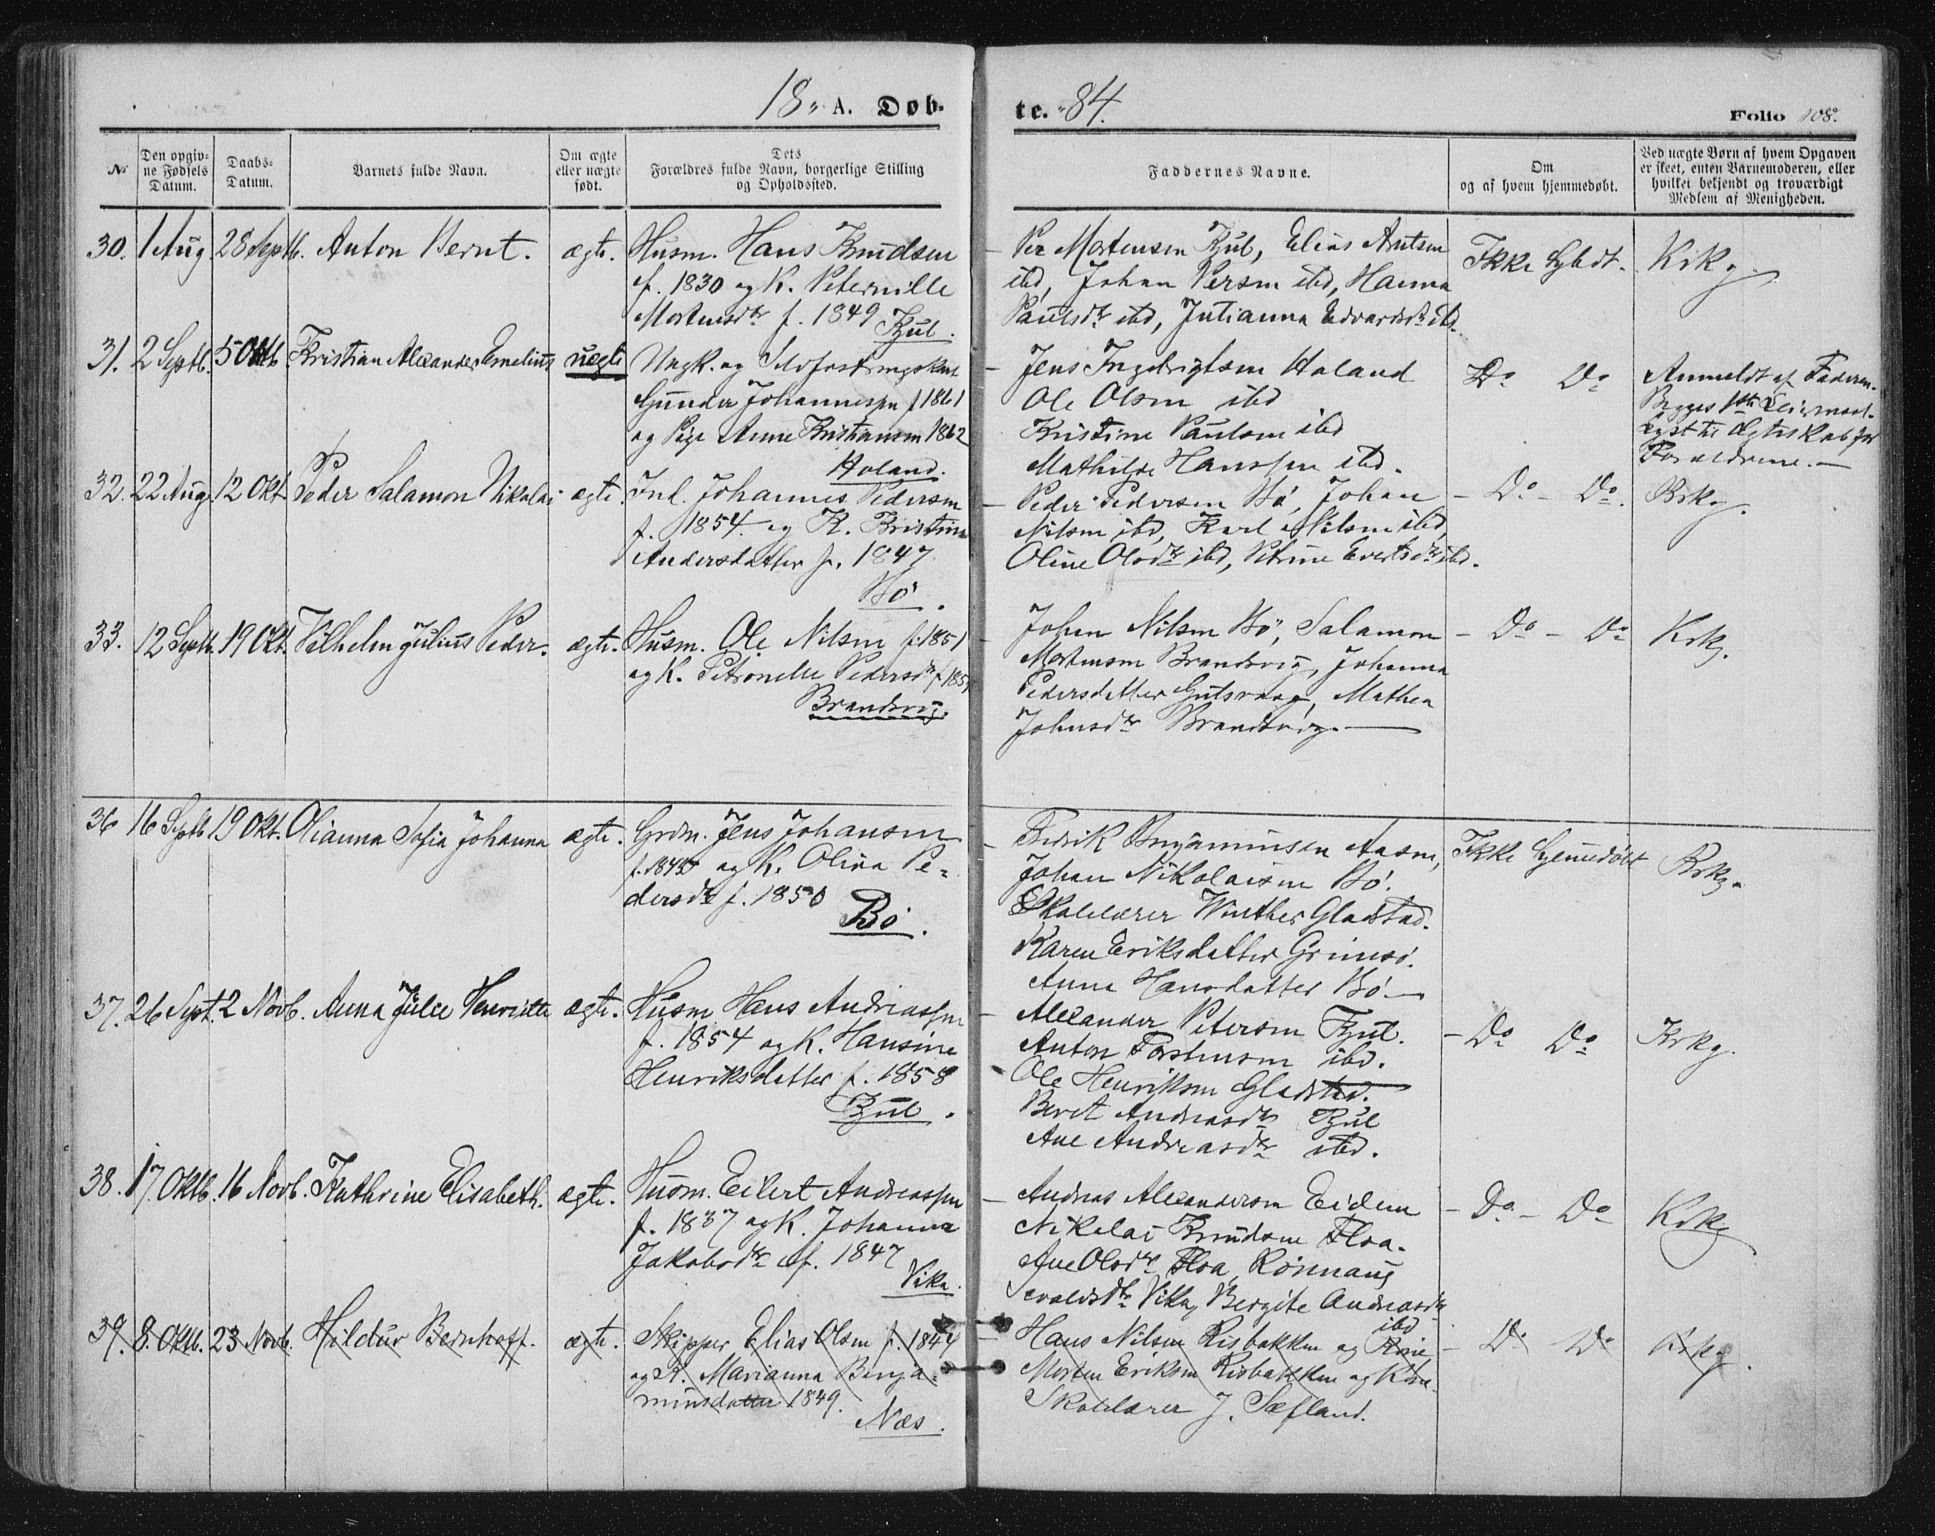 18 A. Døb-
te. 84.
Folio 108.
Nr
Den opgiv-
ne Fødsels
Datum.
Daabs-
Datum.
Barnets fulde Navn.
Om ægte
eller uægte
født.
Dets
Forældres fulde Navn, borgerlige Stilling
og Opholdssted.
Faddernes Navne.
Om
og af hvem hjemmedøbt.
Ved uægte Børn af hvem Opgaven
er skeet, enten Barnemoderen, eller
hvilket bekjendt og troværdigt
Medlem af Menigheden.
30. 1 Aug 28 Septb. Anton Bernt. ægte.
Husm. Hans Knudsen
f. 1830 og K. Peternille
Mortensdtr f. 1849
Kjul.
Per Mortensen Kjul, Elias
ibd, Johan Persen ibd, Hanna
Paulsdtr ibd, Julianna Edvardsdtr ibd.
Ikke
Krkg.
31. 2 Septb. 5 Oktb Kristian Alexander Emelius uægte
Ungk. og
Gunder Johannessen f 1861
og Pige Anne Kristiansen 1862
Holand.
Jens Ingebrigtsen Holand
Ole Olsen ibd
Kristine Paulsen ibd
Mathilde Hanssen ibd.
Do Do
Anmeldt af Faderen.
Begges 1ste Leiermaal.
Lyst til Ægteskab for
Forældrene.
32. 22 Aug 12 Okt Peder Salamon Nikolai ægte.
Inl. Johannes Pedersen
f. 1854. og K. Kristina
Andersdatter f. 1847
Bö.
Peder Pedersen Bö, Johan
Nilsen ibd, Karl Nilsen ibd,
Oline Olsdtr ibd, Petrine Evertsdtr ibd.
- Do - Do. Krkg.
33. 12 Septb. 19 Okt. Vilhelm Julius Peder. ægte.
Husm. Ole Nilsen f. 1851
og K. Petronelle Pedersdtr f 185
Brandsvig.
Johan Nilsen Bö, Salamon
Mortensen Brandsvig, Johanna
Pedersdatter Gutsvaag, Mathea
Johnsdtr Brandsvig.
- Do - Do Krkg.
36 16 Septb 19 Okt. Olianna Sofia Johanna ægte.
Grdm. Jens Johansen
f. 1845 og K. Olina Pe-
dersdtr f. 1850
Bö.
Fredrik Benjaminsen Aasen,
Johan Nikolaisen Bö.
Skolelærer Winther Gladstad.
Karen Eriksdatter Grimsö.
Anna Hansdatter Bö
Ikke hjemmedöbt Krkg.
37. 26 Sept. 2 Novb. Anna Julie Henriette ægte.
Husm Hans Andreassen
f. 1854 og K. Hansine
Henriksdatter f. 1858
Kjul.
Alexander Petersen Kjul.
Anton Torstensen ibd.
Ole Henriksen Gladstad.
Beret Andreasdtr Kjul
Ane Andreasdtr ibd.
- Do Do Krkg.
38. 17. Oktb. 16 Novb. Kathrine Elisabeth. ægte.
Husm. Eilert Andreassen
f. 1837 og K. Johanna
Jakobsdtr f. 1847
Vika.
Andreas Alexandersen Eidem
Nikolai Knudsen Floa.
Ane Olsdtr Floa, Rönnaug
Vika, Bergite Andreasdtr
ibd
- Do - Do Krkg
39. 8. Oktb. 23 Novb. Hildur Bernhoff. ægte.
Skipper Elias Olsen f. 1844
og K. Marianna Benja-
minsdatter 1849.
Næs.
Hans Nilsen Risbakken og Kone
Morten Eriksen Risbakken og Kone.
Skolelærer J. Sæfland.
- Do Do Krkg.